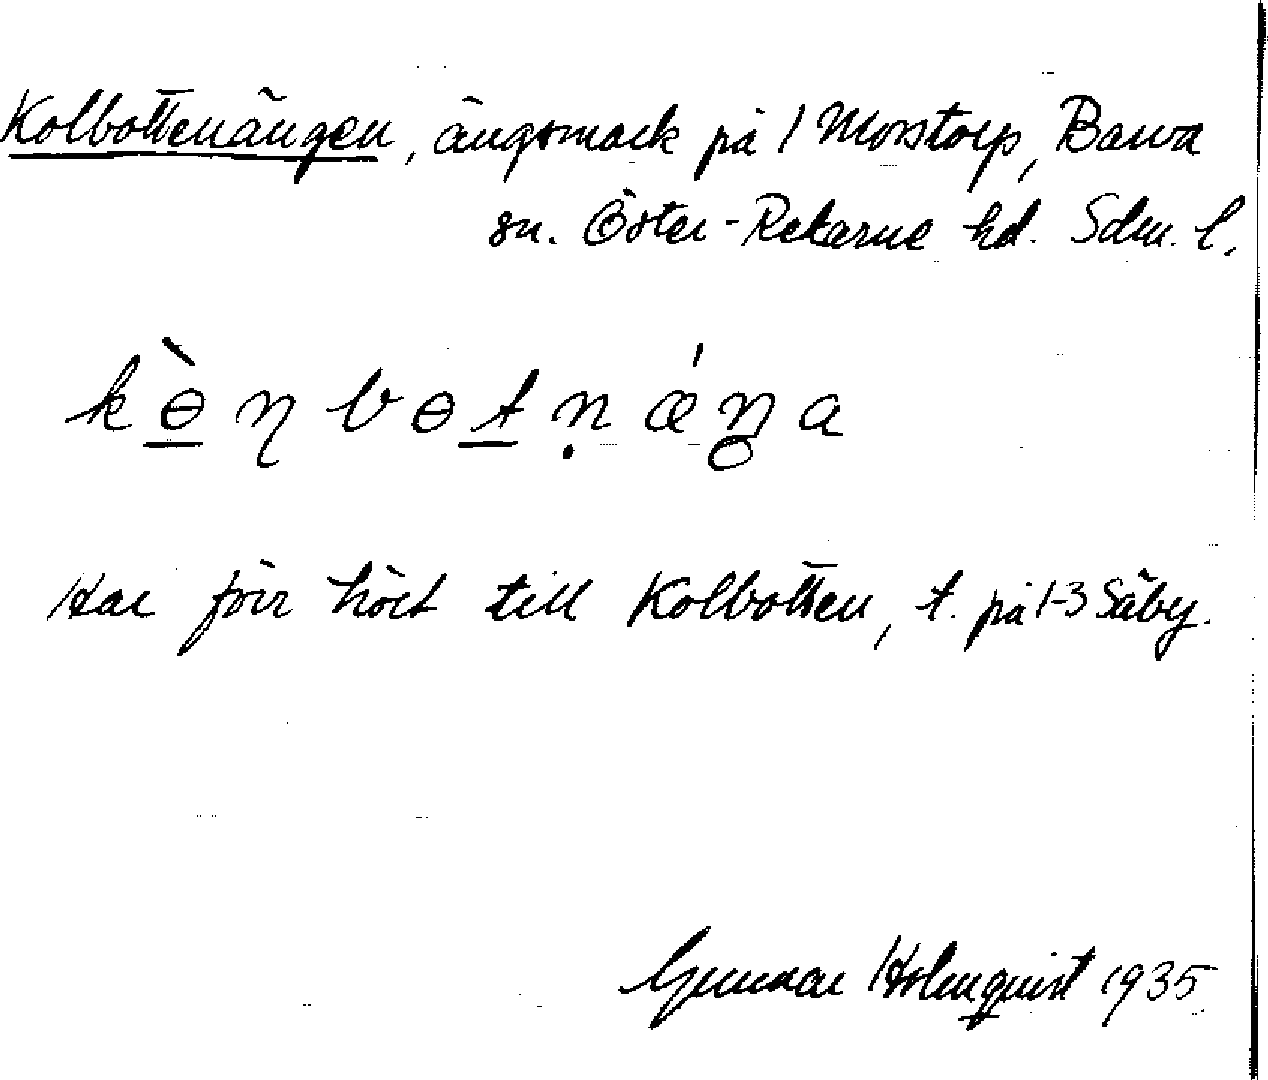 Kolbottenängen, ängsmark på 1 Morstorp, Barva
sn. Öster-Rekarne hd. Sdm. l.
kɵ̀ηbɵtṇǽŋa
Har förr hört till Kolbotten, t. på 1-3 Säby.
Gunnar Holmquist 1935